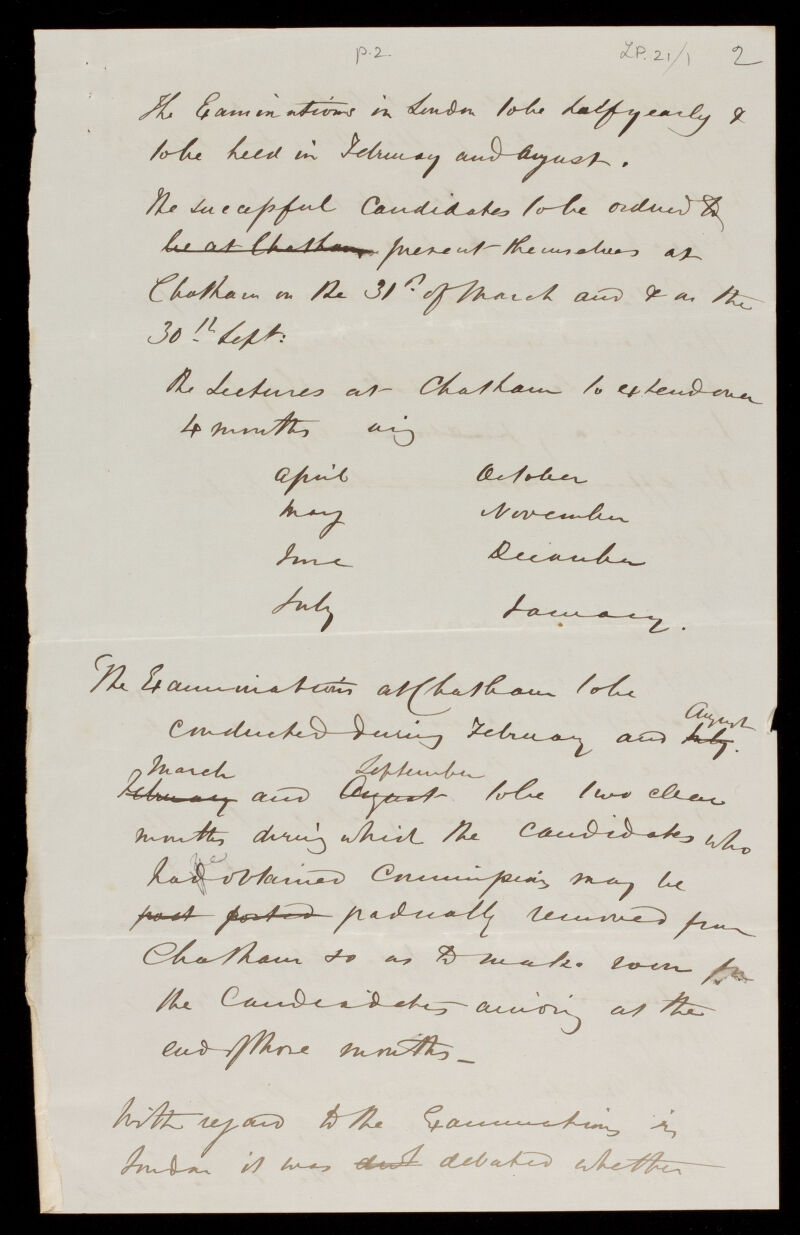 p.2.
LP. 21/1 2
The Examinations in London to be half yearly &
to be held in February and August.
The successful Candidates to be ordered to
be at Chatham present themselves at
Chatham on the 31st of March and & on the
30th Sept:
The Lectures at Chatham to extend over
4 months viz
April October
May November
June December
July January.
The Examinations at Chatham to be
conducted during February and July. August
February March and August September to be two clear
months during which the Candidates who
had ve obtained Commissions may be
post posted gradually removed from
Chatham so as to make room for
the Candidates arriving at the
end of those months –
With regard to the Examinations in
London it was debated whether